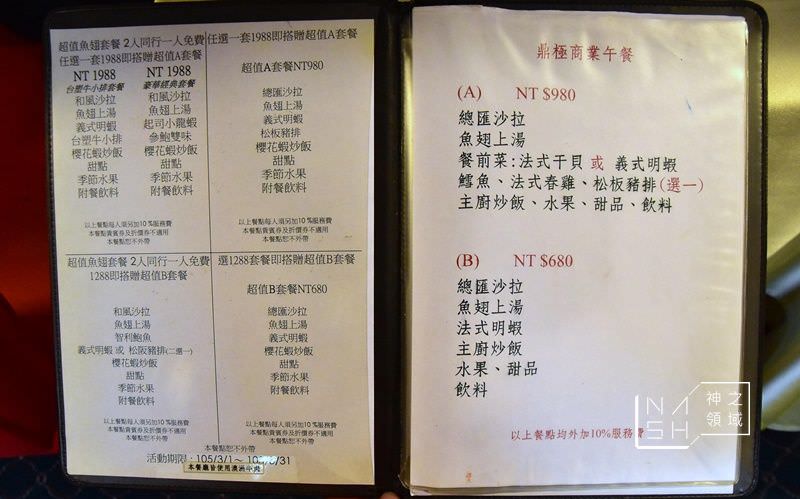 超值魚翅套餐 2人同行一人免費
任選一套1988即搭贈超值A套餐
NT 1988
台塑牛小排套餐
和風沙拉
魚翅上湯
義式明蝦
台塑牛小排
櫻花蝦炒飯
甜點
季節水果
附餐飲料
NT 1988
豪華經典套餐
和風沙拉
魚翅上湯
起司小龍蝦
參鮑雙味
櫻花蝦炒飯
甜點
季節水果
附餐飲料
以上餐點每人須另加10%服務費
本餐點貴賓券及折價券不適用
本餐點恕不外帶
任選一套1988即搭贈超值A套餐
超值A套餐NT980
總匯沙拉
魚翅上湯
義式明蝦
松板豬排
櫻花蝦炒飯
甜點
季節水果
附餐飲料
以上餐點每人須另加10%服務費
本餐點貴賓券及折價券不適用
本餐點恕不外帶
超值魚翅套餐 2人同行一人免費
1288即搭贈超值B套餐
和風沙拉
魚翅上湯
智利鮑魚
義式明蝦 或 松阪豬排(二選一)
櫻花蝦炒飯
甜點
季節水果
附餐飲料
以上餐點每人須另加10%服務費
本餐點貴賓券及折價券不適用
本餐點恕不外帶
選1288套餐即搭贈超值B套餐
超值B套餐NT680
總匯沙拉
魚翅上湯
義式明蝦
櫻花蝦炒飯
甜點
季節水果
附餐飲料
以上餐點每人須另加10%服務費
本餐點貴賓券及折價券不適用
本餐點恕不外帶
本餐點恕不外帶
活動期限:105/3/1~
/31
本餐廳皆使用澳洲牛肉
鼎極商業午餐
(A) NT $980
總匯沙拉
魚翅上湯
餐前菜:法式干貝 或 義式明蝦
鱈魚、法式春雞、松板豬排(選一)
主廚炒飯、水果、甜品、飲料
(B) NT $680
總匯沙拉
魚翅上湯
法式明蝦
主廚炒飯
水果、甜品
飲料
以上餐點均外加10%服務費
NASH
神之領域